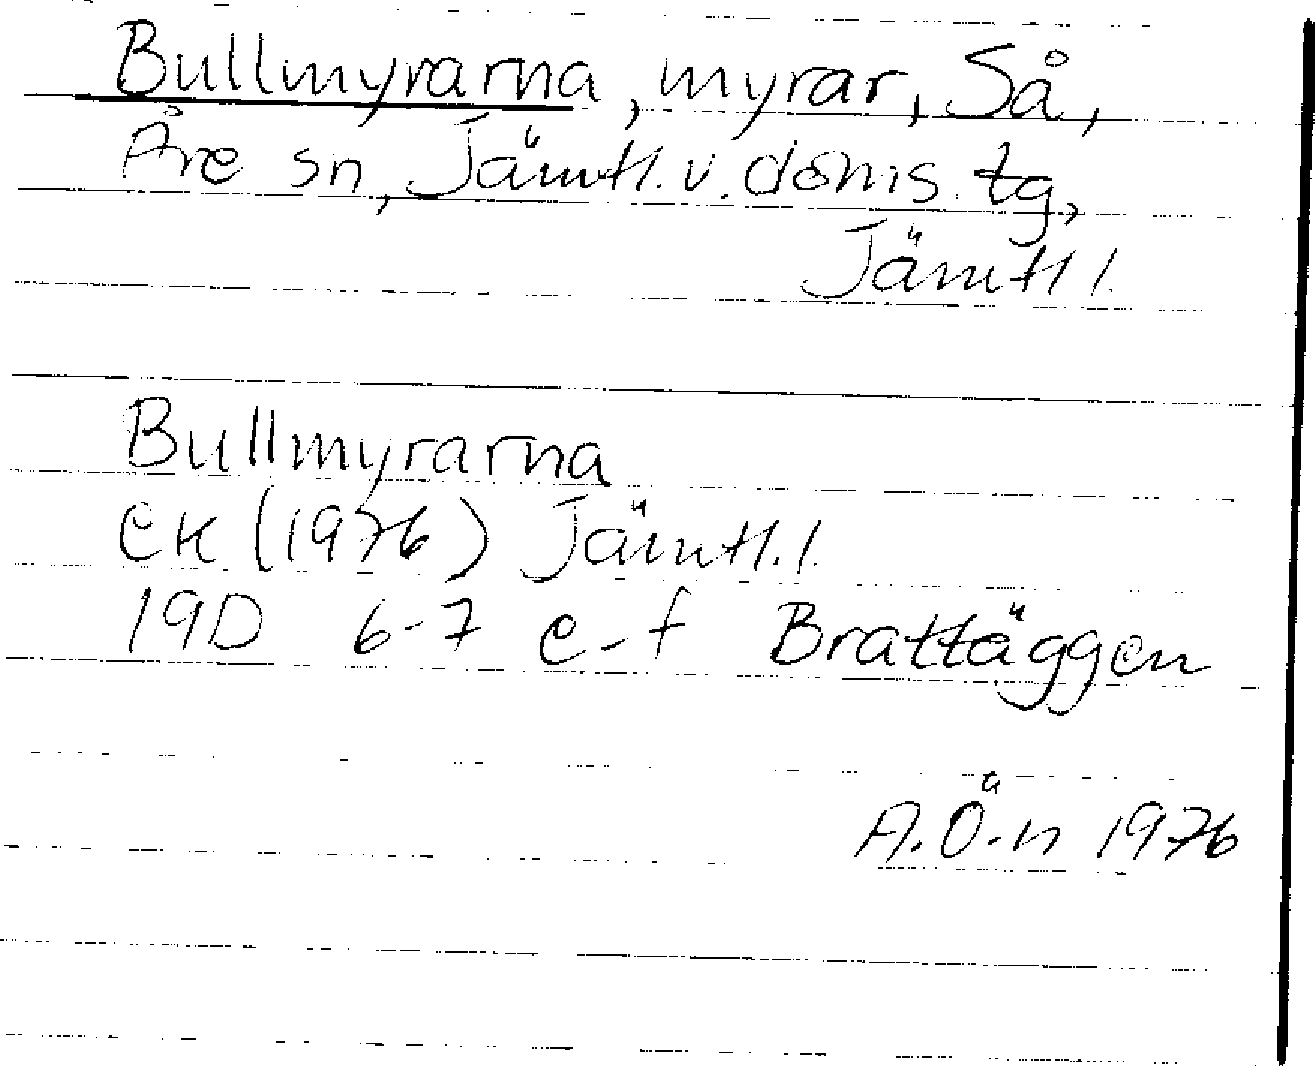 Bullmyrarna, myrar, Så,
Åre sn, Jämtl. v. doms. tg,
Jämtl l.
Bullmyrarna
EK (1976) Jämtl. l.
19D 6-7 e-f Brattäggen
A. Ö-n 1976